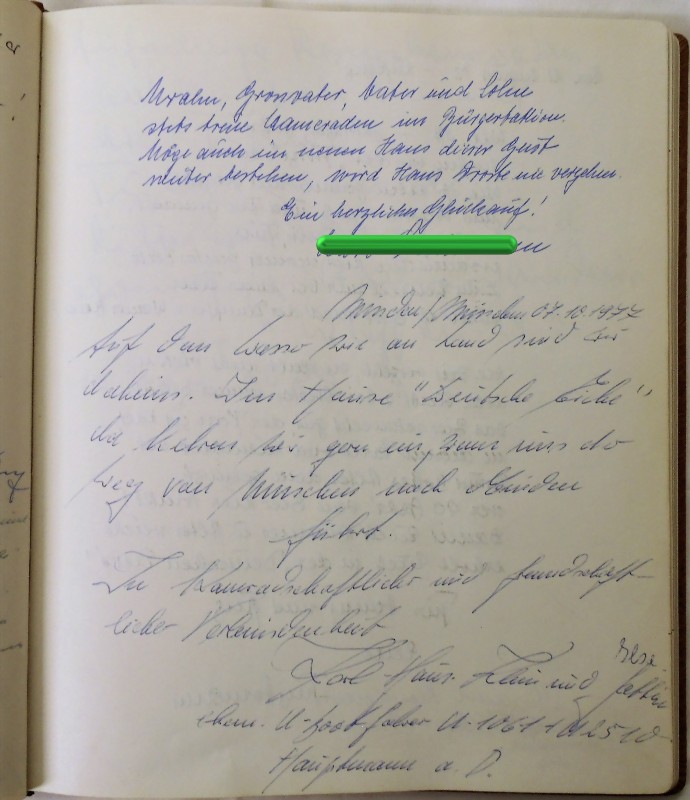 Urahn, Grosvater, Vater und Sohn
stets treue Kameraden im Bürgerbatlion.
Möge auch im neuen Haus dieser Geist
weiter bestehen, wird Haus Droste nie vergehen.
Ein herzliches Glückauf!
Minden/München 07.10.1977
Auf dem Wasser wie an Land sind wir
daheim. Im Hause "Deutsche Eiche"
da kehren wir gern ein, wenn uns der
Weg von München nach Minden
führt.
In kameradschaftlicher und freundschaft-
licher Verbundenheit
Karl Hans Klein und Gattin
ehem. U-Bootfahrer U-1061 + U 2510
Hauptmann a. D.